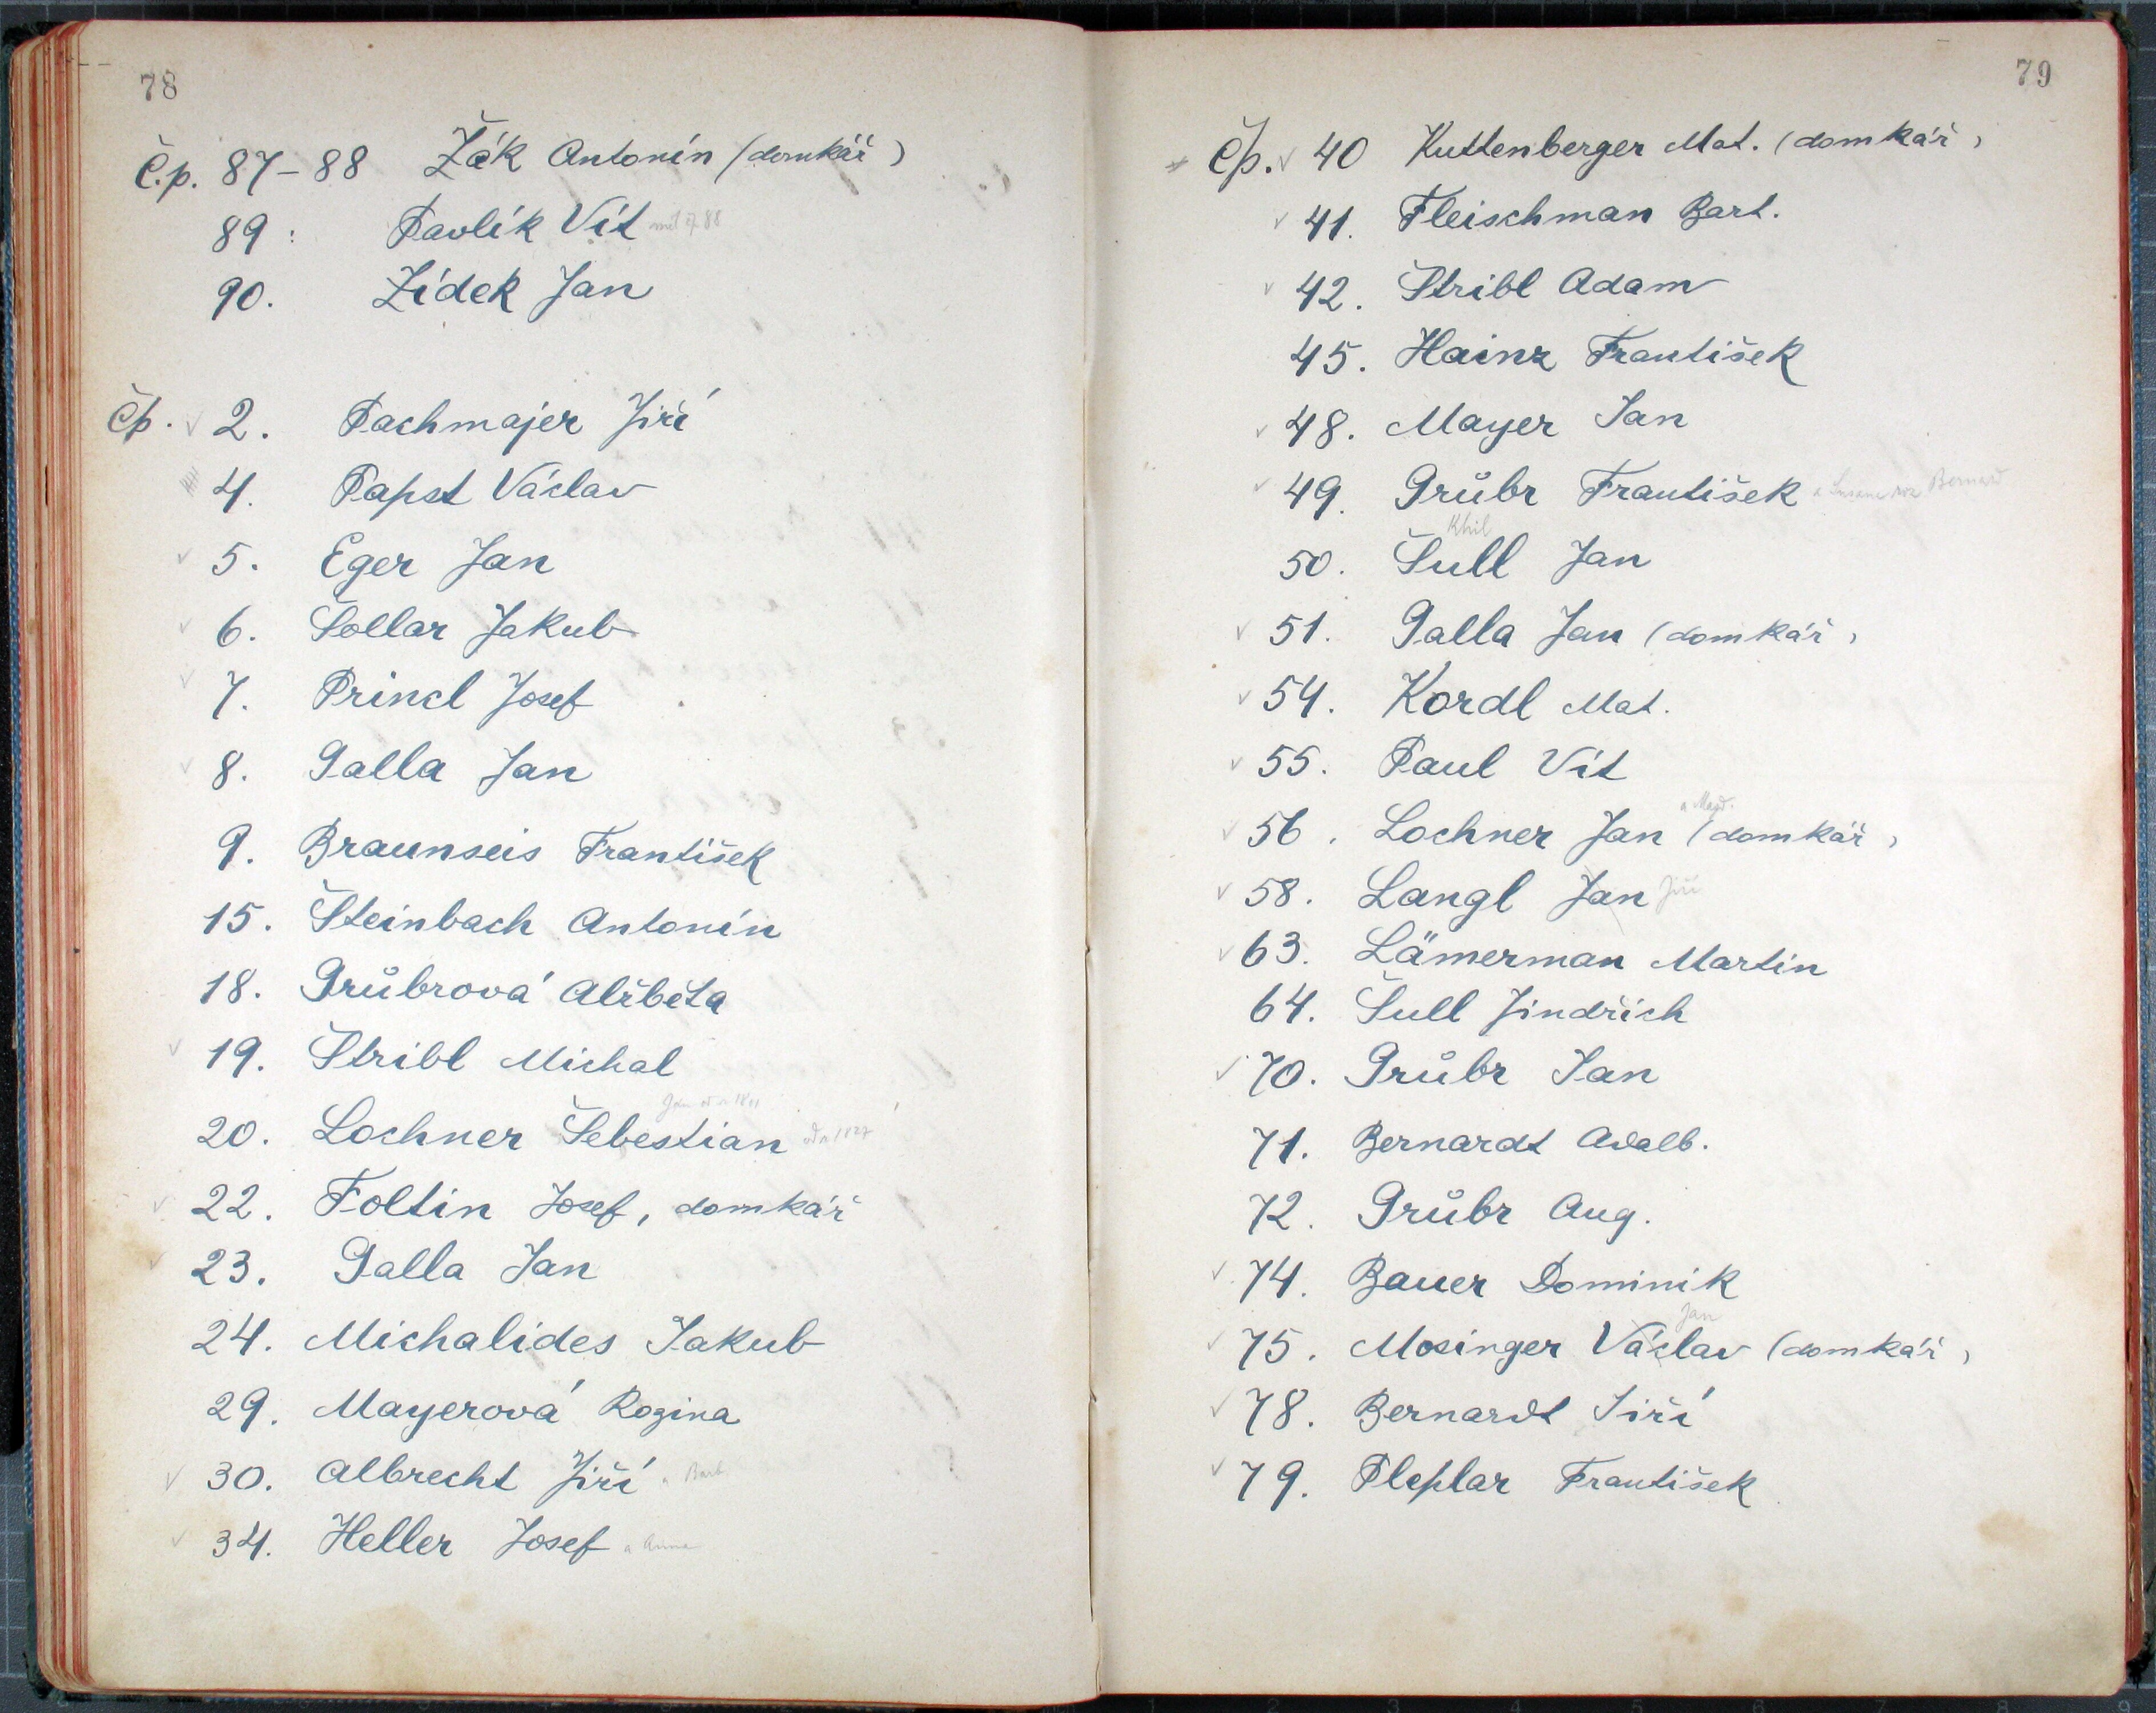 78
Č.p. 87-88 Žák Antonín (domkář)
89: Pavlík Vít
90. Židek Jan
Čp. 2. Pachmajer Jiří
4. Papst Václav
5. Eger Jan
6. Šollar Jakub
7. Princl Josef
8. Galla Jan
9. Braunseis František
15. Šteinbach Antonín
18. Grůbrová Alžběta
19. Štribl Michal
20. Lochner Šebestian od r 1827
22. Foltin Josef, domkář
23. Galla Jan
24. Michalides Jakub
29. Mayerová Rozina
30. Albrecht Jiří a Barb.
34. Heller Josef a Anna
79
Čp. 40 Kuttenberger Mat. (domkář)
41. Fleischman Bart.
42. Štribl Adam
45. Hainz František
48. Mayer Jan
49. Grůbr František Bernard
Khil
50. Šull Jan
51. Galla Jan (domkář)
54. Kordl Mat.
55. Paul Vít
a Magd.
56. Lochner Jan (domkář)
58. Langl Jan Jiří
63. Lämerman Martin
64. Šull Jindřich
70. Grůbr Jan
71. Bernardt Adalb.
72. Grůbr Aug.
74. Bauer Dominik
Jan
75. Mosinger Václav (domkář)
78. Bernardt Jiří
79. Pleplar František